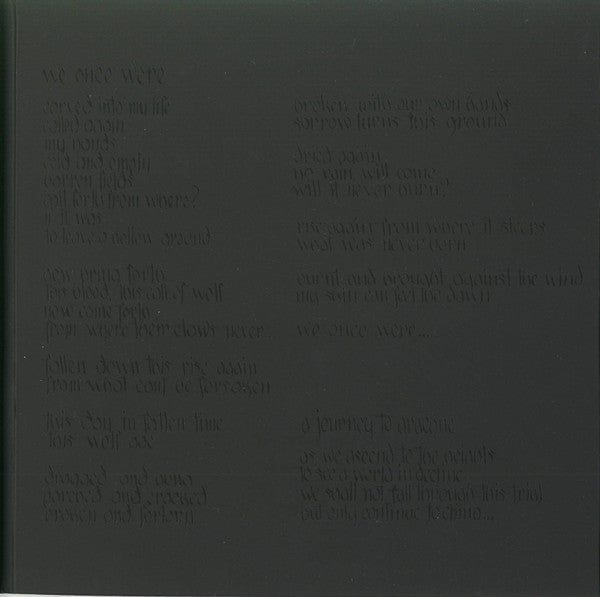 we once were
carved into my life
called again
my hands
cold and empty
barren fields
spit forth from where?
if it was
to leave a hollow ground
now bring forth
this blood, this call of wolf
now come forth
from where them claws never...
fallen down this rise again
from what cant be forsaken
this day in fallen time
this wolf age
dragged and
parched and cracked
broken and forlorn
broken with our own hands
sorrow turns this ground
dried again
no rain will come
will it never burn?
rise again from where it sleeps
what was never born
burnt and brought against the wind
my soul can feel the dawn
we once were...
a journey to
as we ascend to the heights
to see a world in decline
we shall not fall through this trial
but only continue to climb...